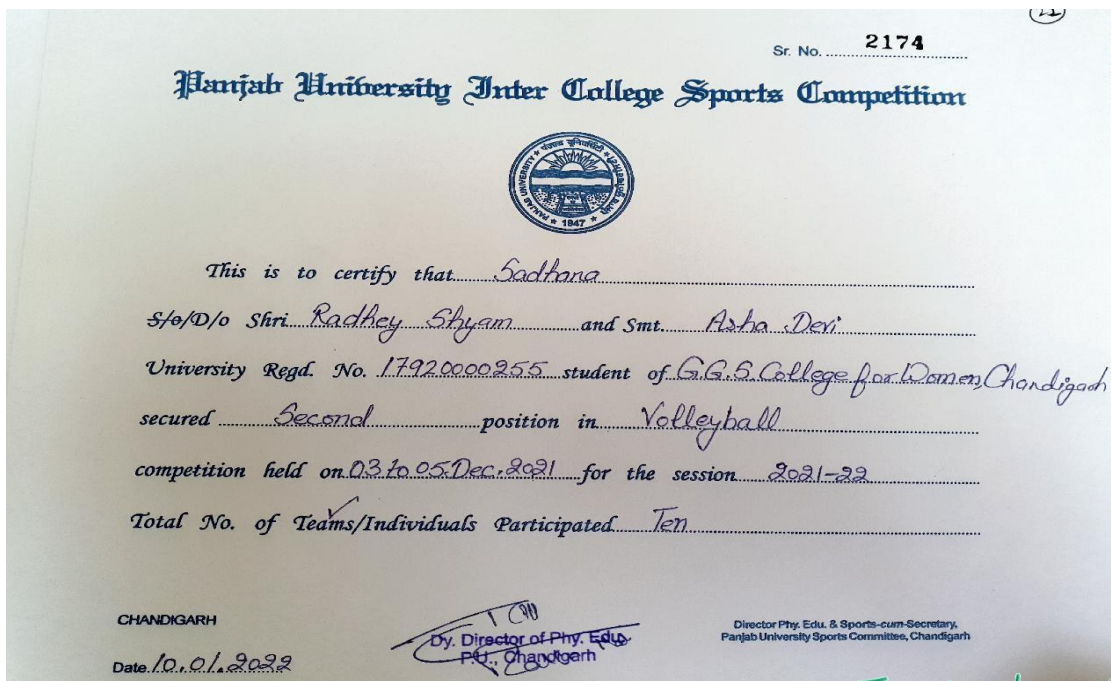 22
Sr. No. 2174
Panjab University Inter College Sports Competition
PANJAB UNIVERSITY
1947
This is to certify that Sadhana
S/o/D/o Shri Radhey Shyam and Smt. Asha Devi
University Regd. No. 17920000255 student of G.G.S. College for Women, Chandigarh
secured Second position in Volleyball
competition held on 03 to 05 Dec. 2021 for the session 2021-22
Total No. of Teams/Individuals Participated Ten
CHANDIGARH
Dy. Director of Phy. Edu.
P.U., Chandigarh
Director Phy. Edu. & Sports-cum-Secretary,
Panjab University Sports Committee, Chandigarh
Date 10.01.2022